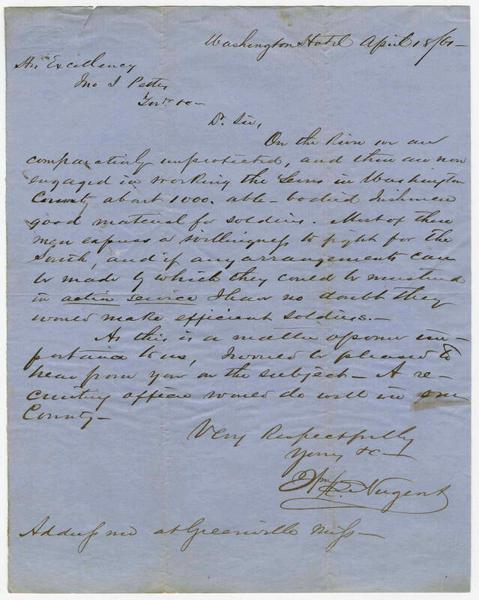 Washington Hotel April 18/61-
His Excellency
Jno J Pettus
Govr &c-
Dr Sir,
On the River we are
comparatively unprotected, and there are now
engaged in working the Levees in Washington
County about 1000. able-bodied Irishmen
good material for soldiers. Most of these
men express a willingness to fight for the
South, and if any arrangements can
be made by which they could be mustered
in active service I have no doubt they
would make efficient soldiers.-
As this is a matter of some im-
portance to us, I would be pleased to
hear from you on the subject- A re-
cruiting officer would do well in our
County-
Very Respectfully
Yours &c-
Wm L. Nugent
Address me at Greenville Miss-